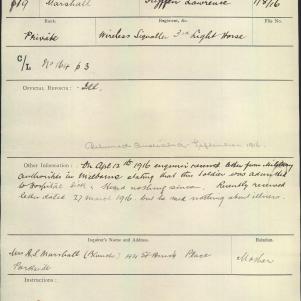 819 Marshall Steffen Lawrence 1/8/16
Rank. Regiment, &c. File No.
Private Wireless Signaller 3rd Light Horse
C/L No 164 p 3
OFFICIAL REPORTS : Ill.
Returned Australia September 1916.
Other Information : On Apl 12th 1916 enquirer received letter from Military
authorities in Melbourne stating that this soldier was admitted
to Hospital Heard nothing since. Recently received
letter dated 27 March 1916, but he said nothing about illness.
Inquirer's Name and Address. Relation.
Mrs R.S. Marshall 44 St Place
Parkside Mother
Instructions :